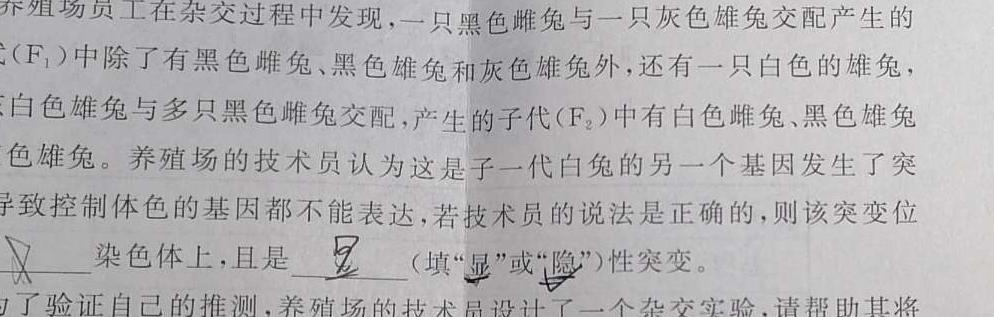 养殖场员工在杂交过程中发现,一只黑色雌兔与一只灰色雄兔交配产生的
(F₁)中除了有黑色雌兔、黑色雄兔和灰色雄兔外,还有一只白色的雄兔,
白色雄兔与多只黑色雌兔交配,产生的子代(F₂)中有白色雌兔、黑色雄兔
色雄兔。养殖场的技术员认为这是子一代白兔的另一个基因发生了突
导致控制体色的基因都不能表达,若技术员的说法是正确的,则该突变位
X 染色体上,且是 显 (填“显”或“隐”)性突变。
了验证自己的推测,养殖场的技术员设计了一个杂交实验,请帮助其将